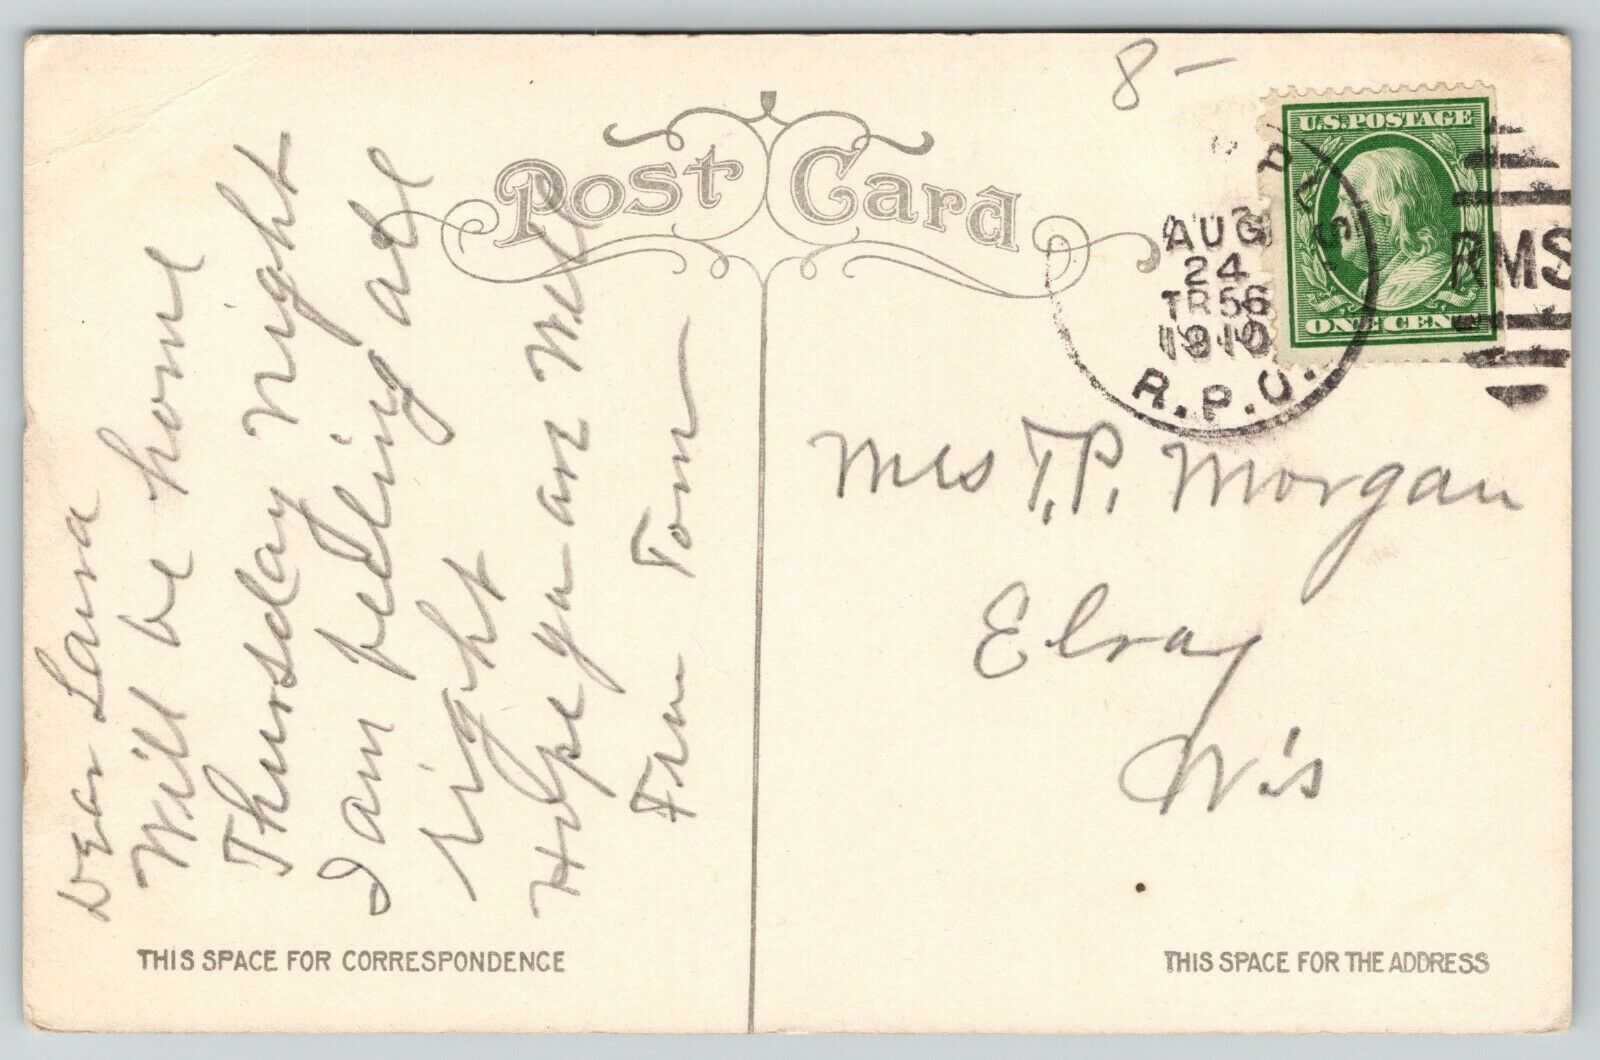 8-
Post Card
U.S.POSTAGE
ONE CENT
AUG
24
TR 56
1910
R.P.O.
RMS
Dear Laura
Will be home
Thursday Night
I am felling all
right
Hope you are Well
From Tom
Mrs T.P. Morgan
Elroy
Wis
THIS SPACE FOR CORRESPONDENCE
THIS SPACE FOR THE ADDRESS